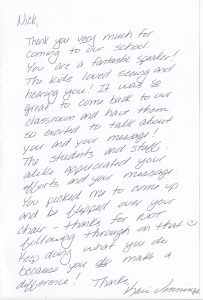 Nick,
Thank you very much for
coming to our school.
You are a fantastic speaker!
The kids loved seeing and
hearing you! It was so
great to come back to our
classroom and have them
so excited to talk about
you and your message!
The students and staff
alike appreciated your
efforts and your message.
You picked me to come up
and be flipped over your
chair - thanks for NOT
following through on that ☺
Keep doing what you do
because you do make a
difference! Thanks,